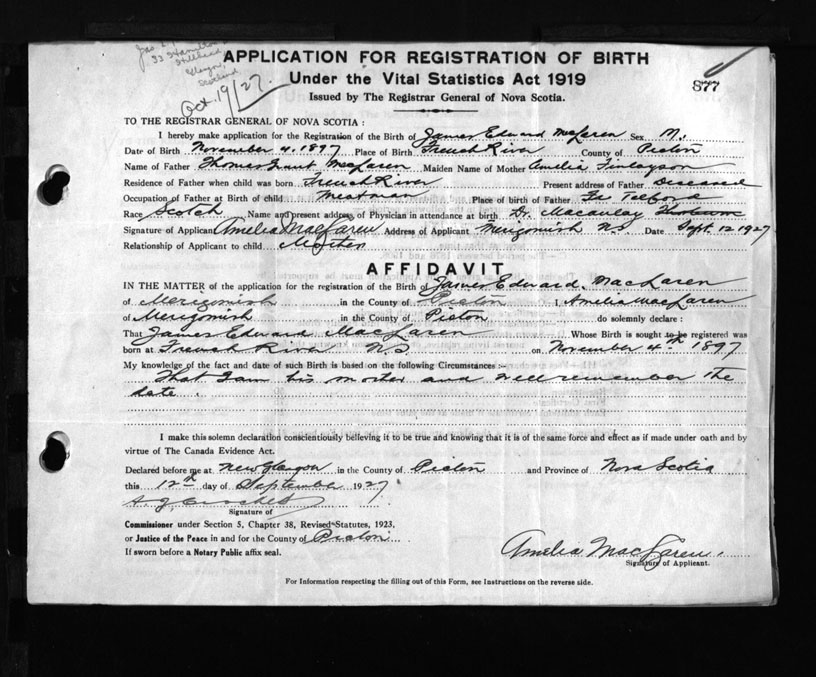 Jas
33 Hamilton
Hillhead
Glasgow,
Scotland
Oct. 19/27.
877
APPLICATION FOR REGISTRATION OF BIRTH
Under the Vital Statistics Act 1919
Issued by The Registrar General of Nova Scotia.
TO THE REGISTRAR GENERAL OF NOVA SCOTIA :
I hereby make application for the Registration of the Birth of James Edward MacLaren Sex M.
Date of Birth November 4, 1897 Place of Birth French River County of Pictou
Name of Father Thomas Grant MacLaren Maiden Name of Mother Amelia Finlayson
Residence of Father when child was born French River Present address of Father Deceased
Occupation of Father at Birth of child Place of birth of Father Telford
Race Scotch Name and present address of Physician in attendance at birth Dr. Macaulay
Signature of Applicant Amelia MacLaren Address of Applicant Merigomish N.S. Date Sept. 12 1927
Relationship of Applicant to child Mother
AFFIDAVIT
IN THE MATTER of the application for the registration of the Birth of James Edward MacLaren
of Merigomish in the County of Pictou I, Amelia MacLaren
of Merigomish in the County of Pictou do solemnly declare :
That James Edward MacLaren Whose Birth is sought to be registered was
born at French River N.S. on November 4th 1897
My knowledge of the fact and date of such Birth is based on the following Circumstances :-
That I am his mother and well remember the
date.
I make this solemn declaration conscientiously believing it to be true and knowing that it is of the same force and effect as if made under oath and by
virtue of The Canada Evidence Act.
Declared before me at New Glasgow in the County of Pictou and Province of Nova Scotia
this 12th day of September 1927
Signature of
Commissioner under Section 5, Chapter 38, Revised Statutes, 1923,
or Justice of the Peace in and for the County of Pictou
If sworn before a Notary Public affix seal.
Amelia MacLaren.
Signature of Applicant.
For Information respecting the filling out of this Form, see Instructions on the reverse side.